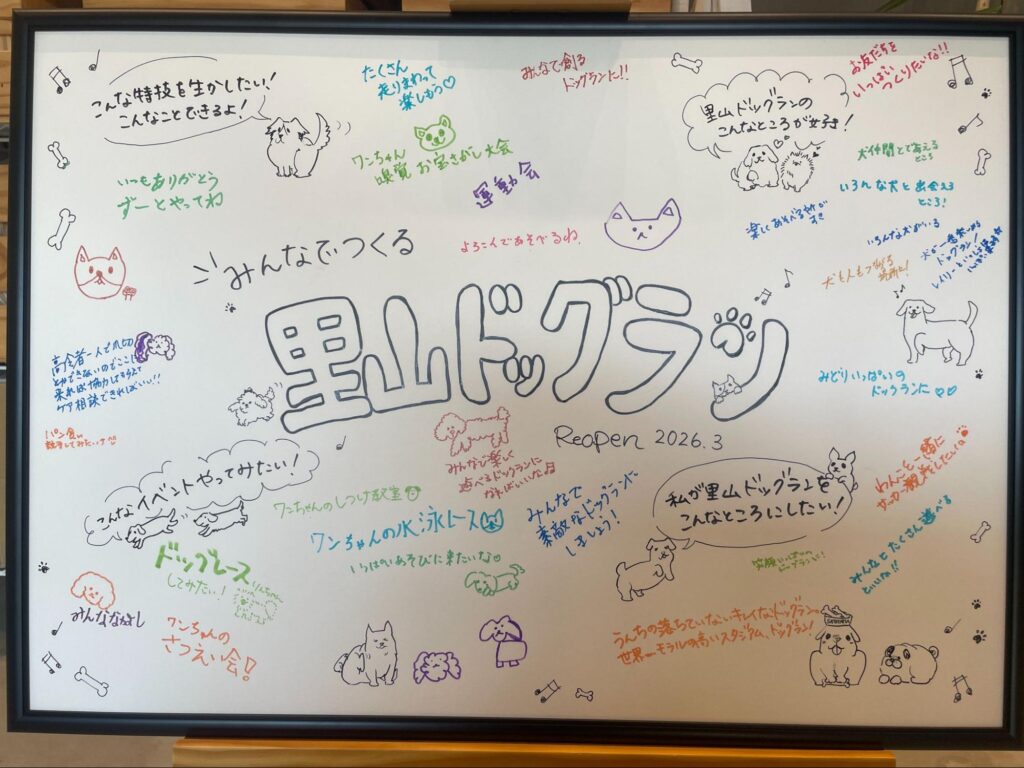 こんな特技を生かしたい!
こんなことできるよ!
たくさん
走りまわって
楽しもう♡
みんなで創る
ドッグランに!!
里山ドッグランの
こんなところが好き!
お友だちを
いっぱい
つくりたいな!!
ワンちゃん
嗅覚 お宝さがし大会
運動会
犬仲間と会える
ところ
いつもありがとう
ずーとやってね
いろんな犬と出会える
ところ!
楽しくあそべるのが
すき
よろこんであそべるね。
いろんな犬がいる
犬が一番楽しめる
ドッグラン!
犬も人もつながる
場所に!
みんなでつくる
里山ドッグラン
Reopen 2026.3
高令者一人で爪切
とかできないのでここに
来れば協力してもらえて
ケア相談できればいい!!
みどりいっぱいの
ドックランに♡♡
パン食い
競争してみたいです
こんなイベントやってみたい!
ワンちゃんのしつけ教室
ワンちゃんの水泳レース
いっぱいあそびに来たいな♡
みんなで楽しく
遊べるドッグランに
なればいいな♫
みんなで
素敵なドッグランに
しましょう!
私が里山ドッグランを
こんなところにしたい!
わんこと一緒に
サッカー観戦したいな
みんなとたくさん遊べる
といいな!!
笑顔いっぱいの
ドッグランに!
ドッグレース
してみたい!
みんななかよし
ワンちゃんの
さつえい会!
うんちの落ちていないキレイなドッグラン。
世界一モラルの高いスタジアム、ドッグラン!